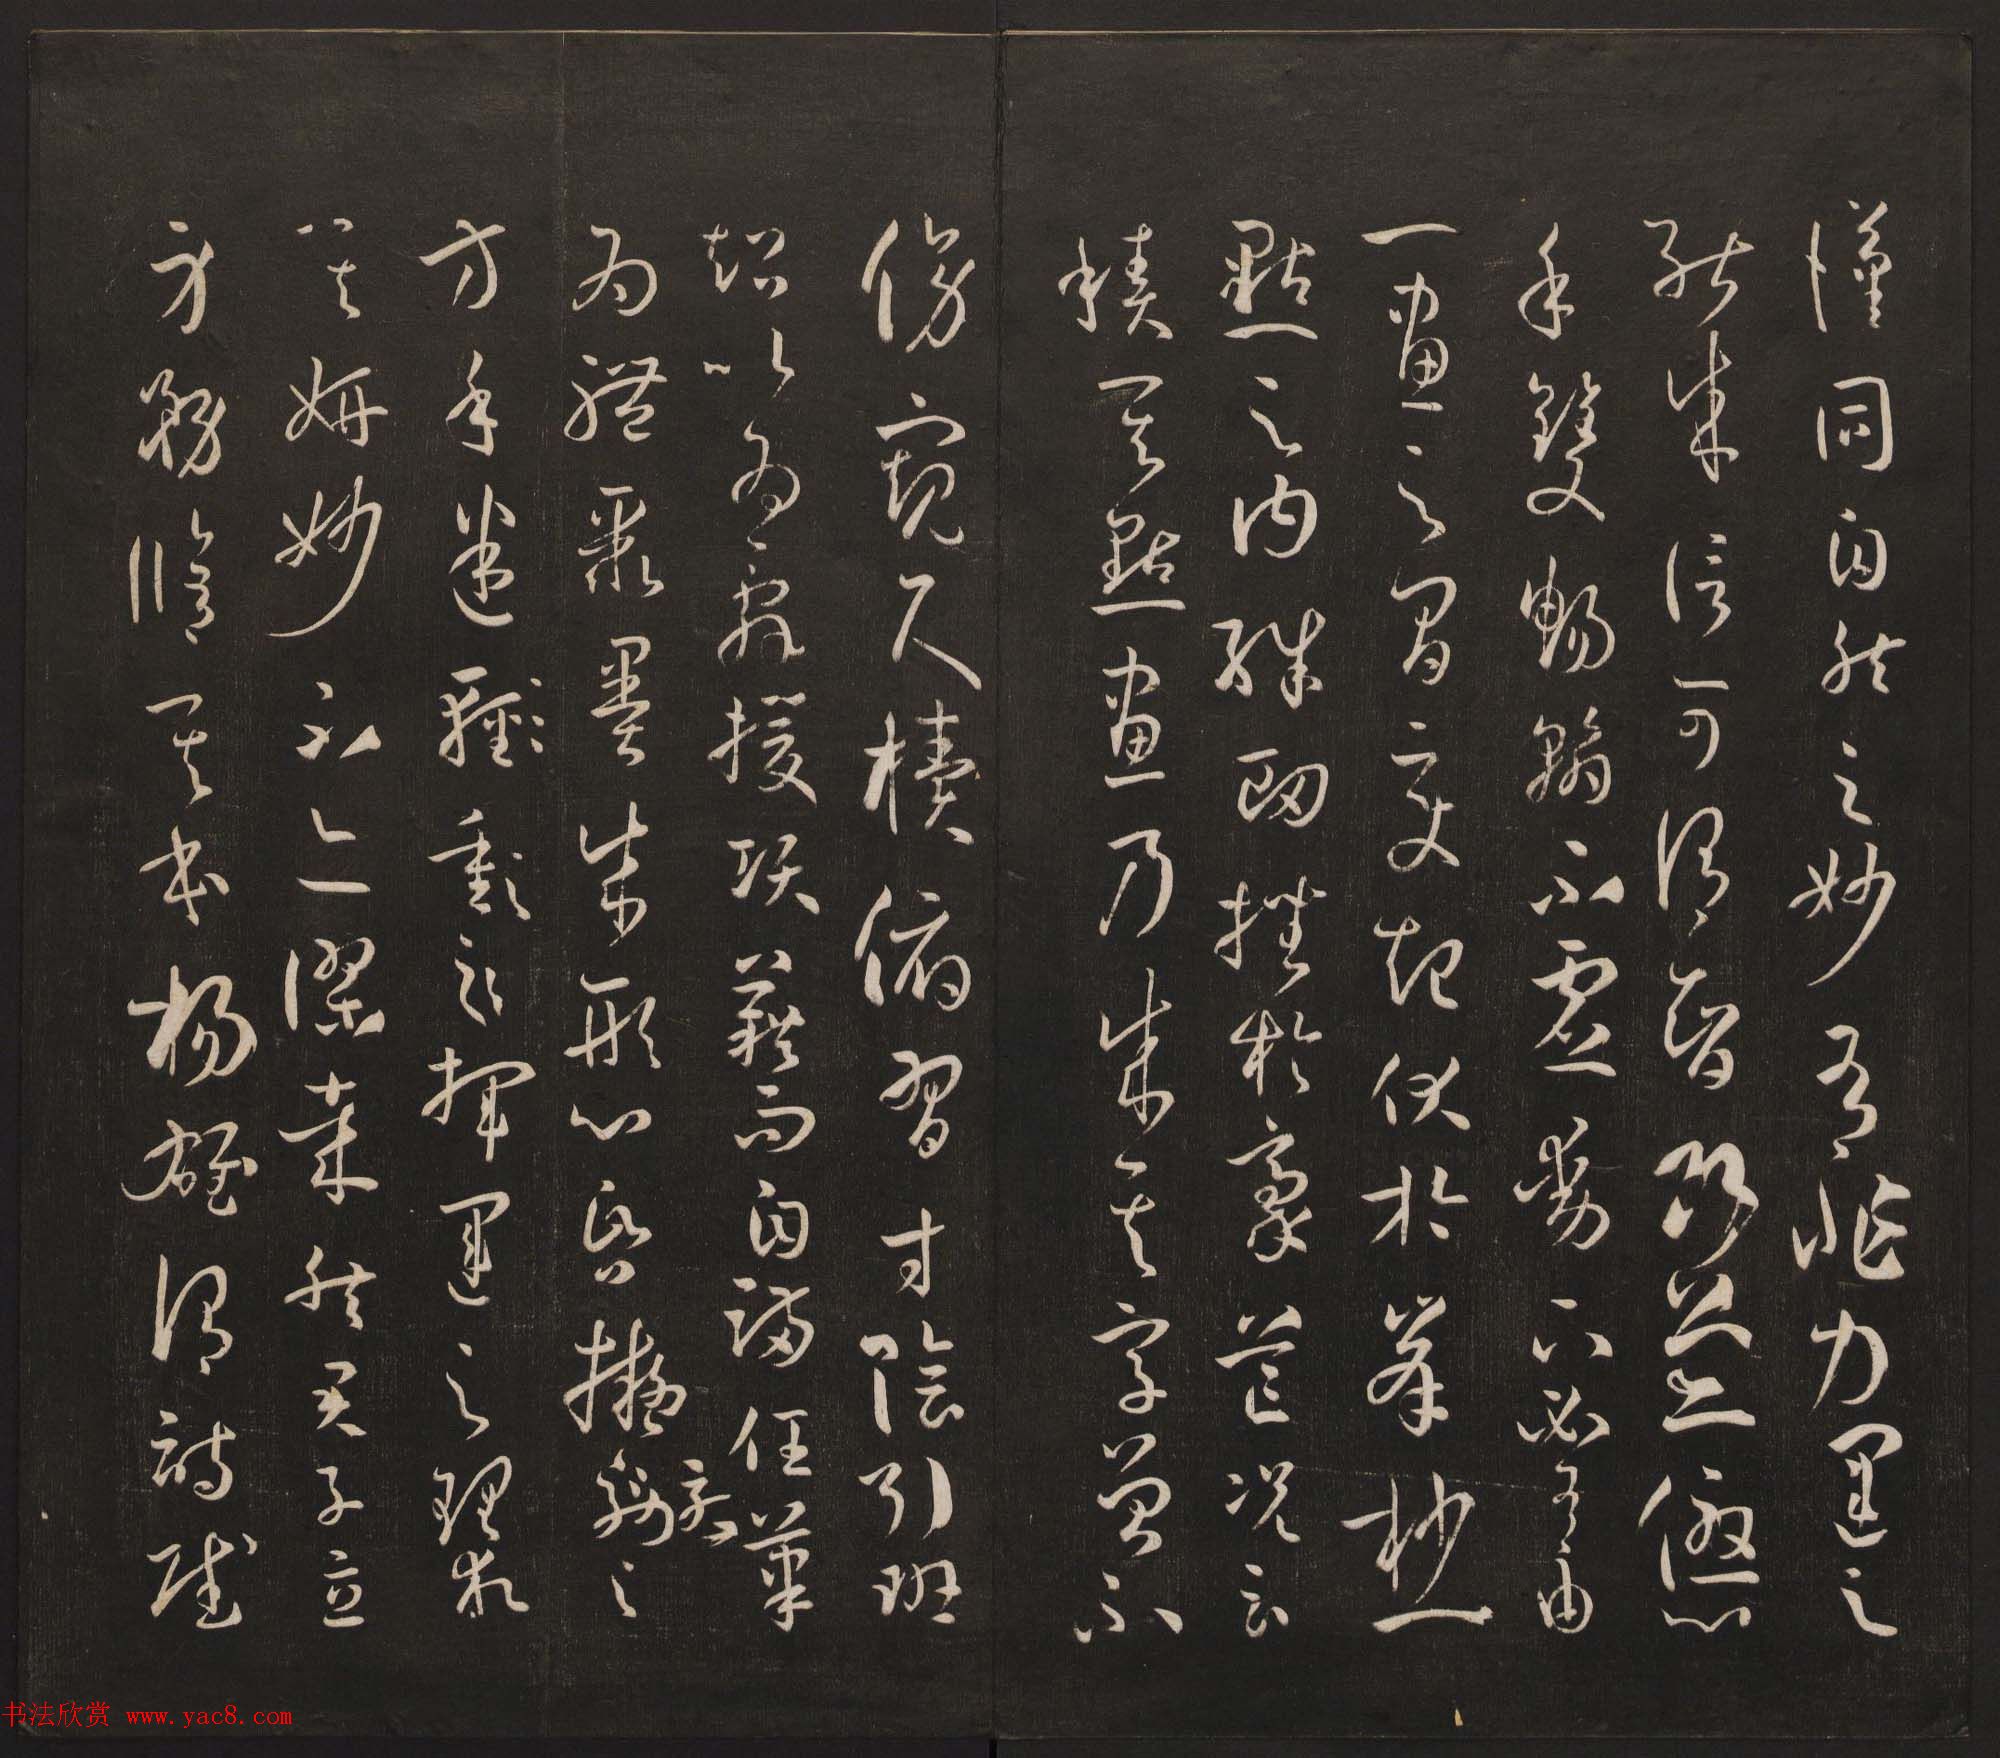 漢同自然之妙有非力運之
能成信可謂智巧兼優心
手雙暢翰不虛動下必有由
一畫之間變起伏於峯杪一
點之內殊衄挫於豪芒況云
積其點畫乃成其字曾不
傍窺尺櫝俯習寸陰引班
超以為辭援項籍而自滿任筆
為體聚墨成形心昏擬效之
方手迷揮運之理求
其妍妙不亦謬哉然君子立
身務脩其本楊雄謂詩賦
书法欣赏 www.yac8.com